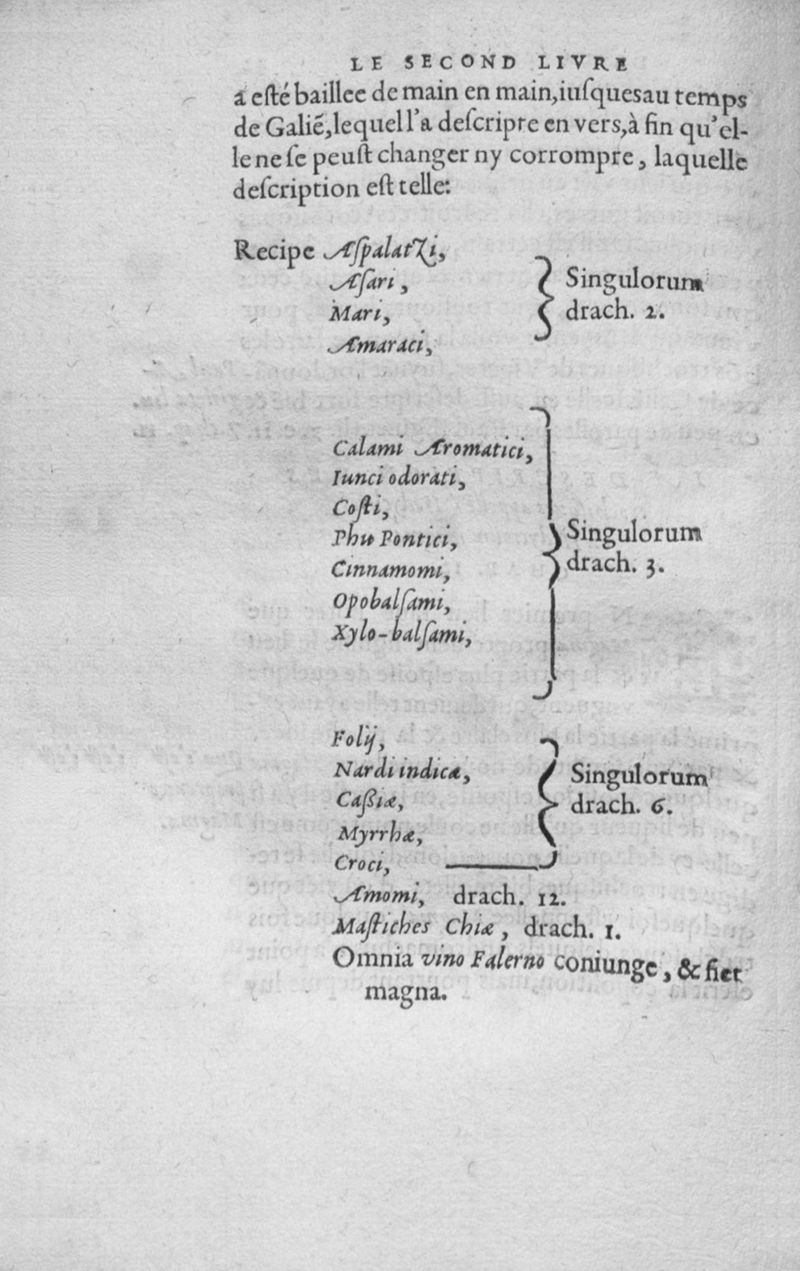 LE SECOND LIVRE
a esté baillee de main en main, iusques au temps
de Galiẽ, lequel l'a descripte en vers, à fin qu'el-
le ne se peust changer ny corrompre, laquelle
description est telle:
Recipe Aspalatzi,
Asari,
Mari,
Amaraci,
Singulorum
drach. 2.
Calami Aromatici,
Iunci odorati,
Costi,
Phu Pontici,
Cinnamomi,
Opobalsami,
Xylo-balsami,
Singulorum
drach. 3.
Folij,
Nardi indicæ,
Caßiæ,
Myrrhæ,
Croci,
Singulorum
drach. 6.
Amomi, drach. 12.
Mastiches Chiæ, drach. 1.
Omnia vino Falerno coniunge, & fiet
magna.